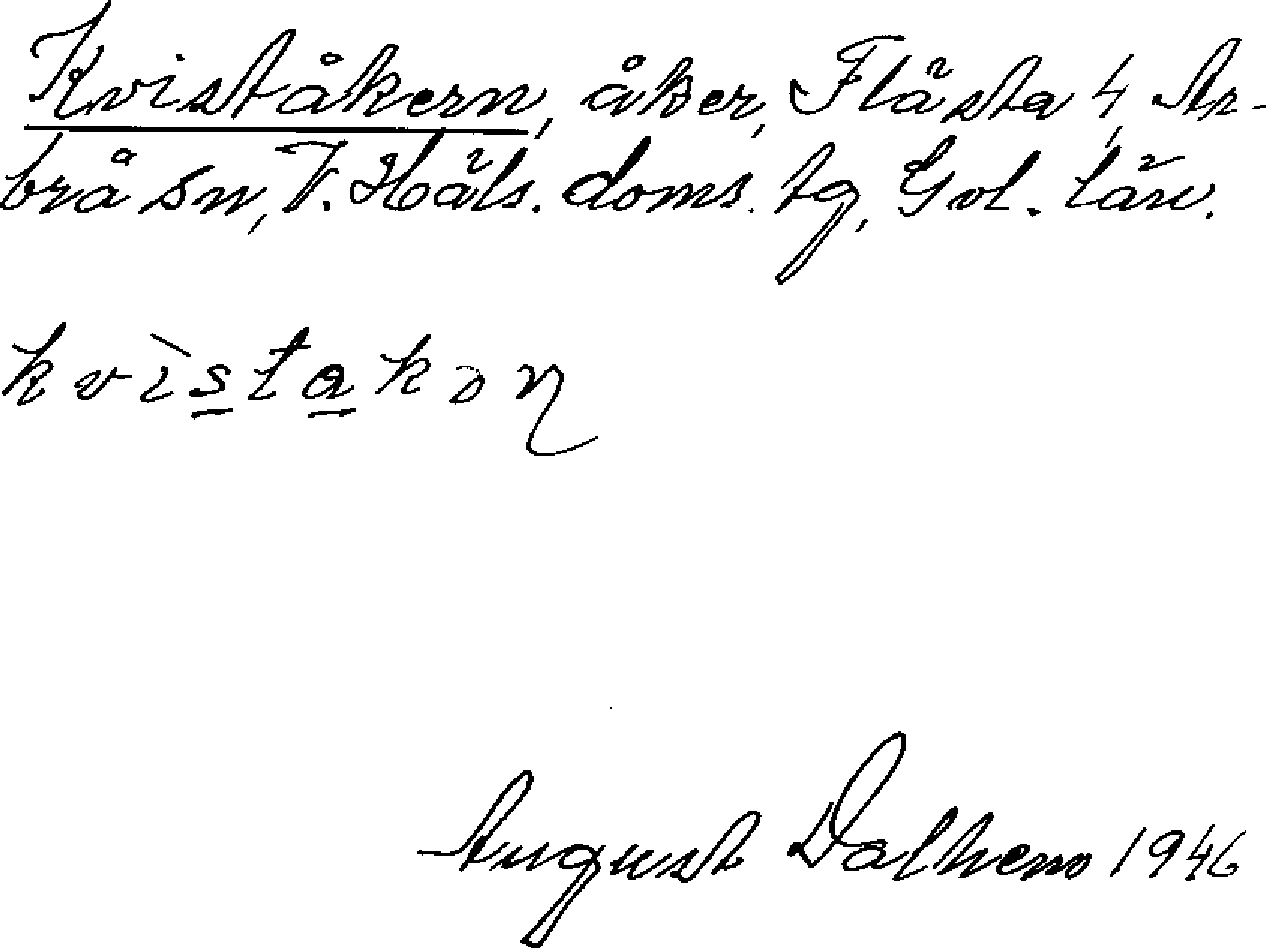 Kviståkern, åker, Flästa 4, Ar-
brå sn, V. Häls. doms. tg, Gvl. län.
kvìs̲ta̲kən
August Dalhem 1946